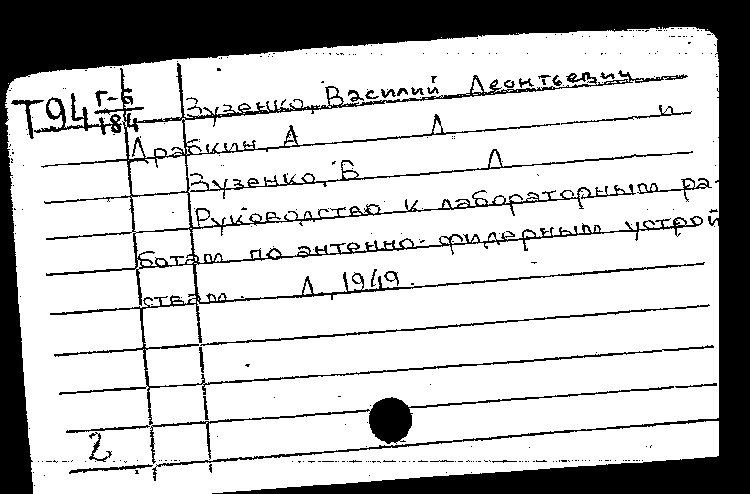 Т94 Г-Б/184 Зузенко, Василий Леонтьевич
Драбкин, А Л и
Зузенко, В Л
Руководство к лабораторным ра-
ботам по антенно-фидерным устрой
ствам. Л., 1949.
2